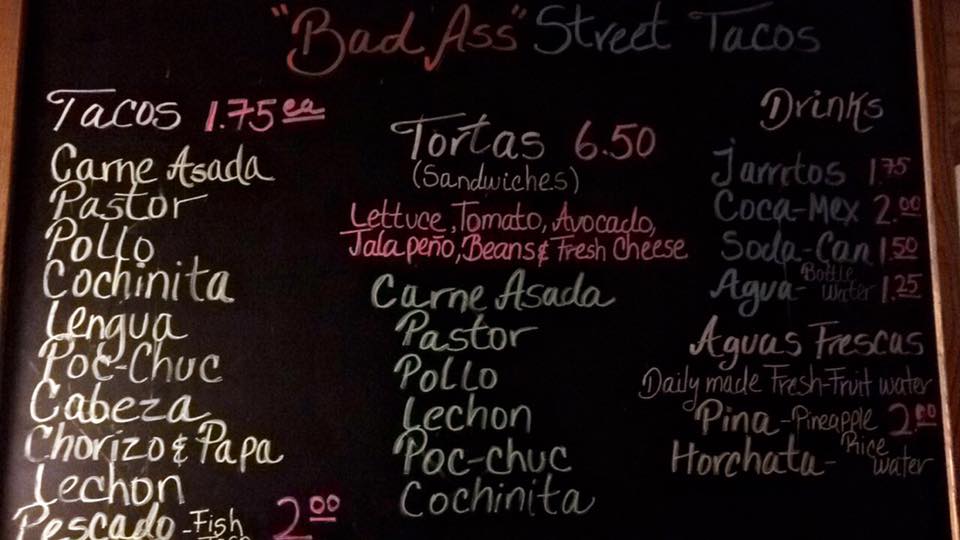 "Bad Ass" Street Tacos
Tacos 1.75 ea
Carne Asada
Pastor
Pollo
Cochinita
Lengua
Poc-Chuc
Cabeza
Chorizo & Papa
Lechon
Pescado - Fish 2.00
Taco
Tortas 6.50
(Sandwiches)
Lettuce, Tomato, Avocado,
Jalapeño, Beans & Fresh Cheese
Carne Asada
Pastor
Pollo
Lechon
Poc-chuc
Cochinita
Drinks
Jarritos 1.75
Coca-Mex 2.00
Soda-Can 1.50
Agua- Bottle water 1.25
Aguas Frescas
Daily made Fresh-Fruit water
Pina - Pineapple 2.00
Horchata - Rice water